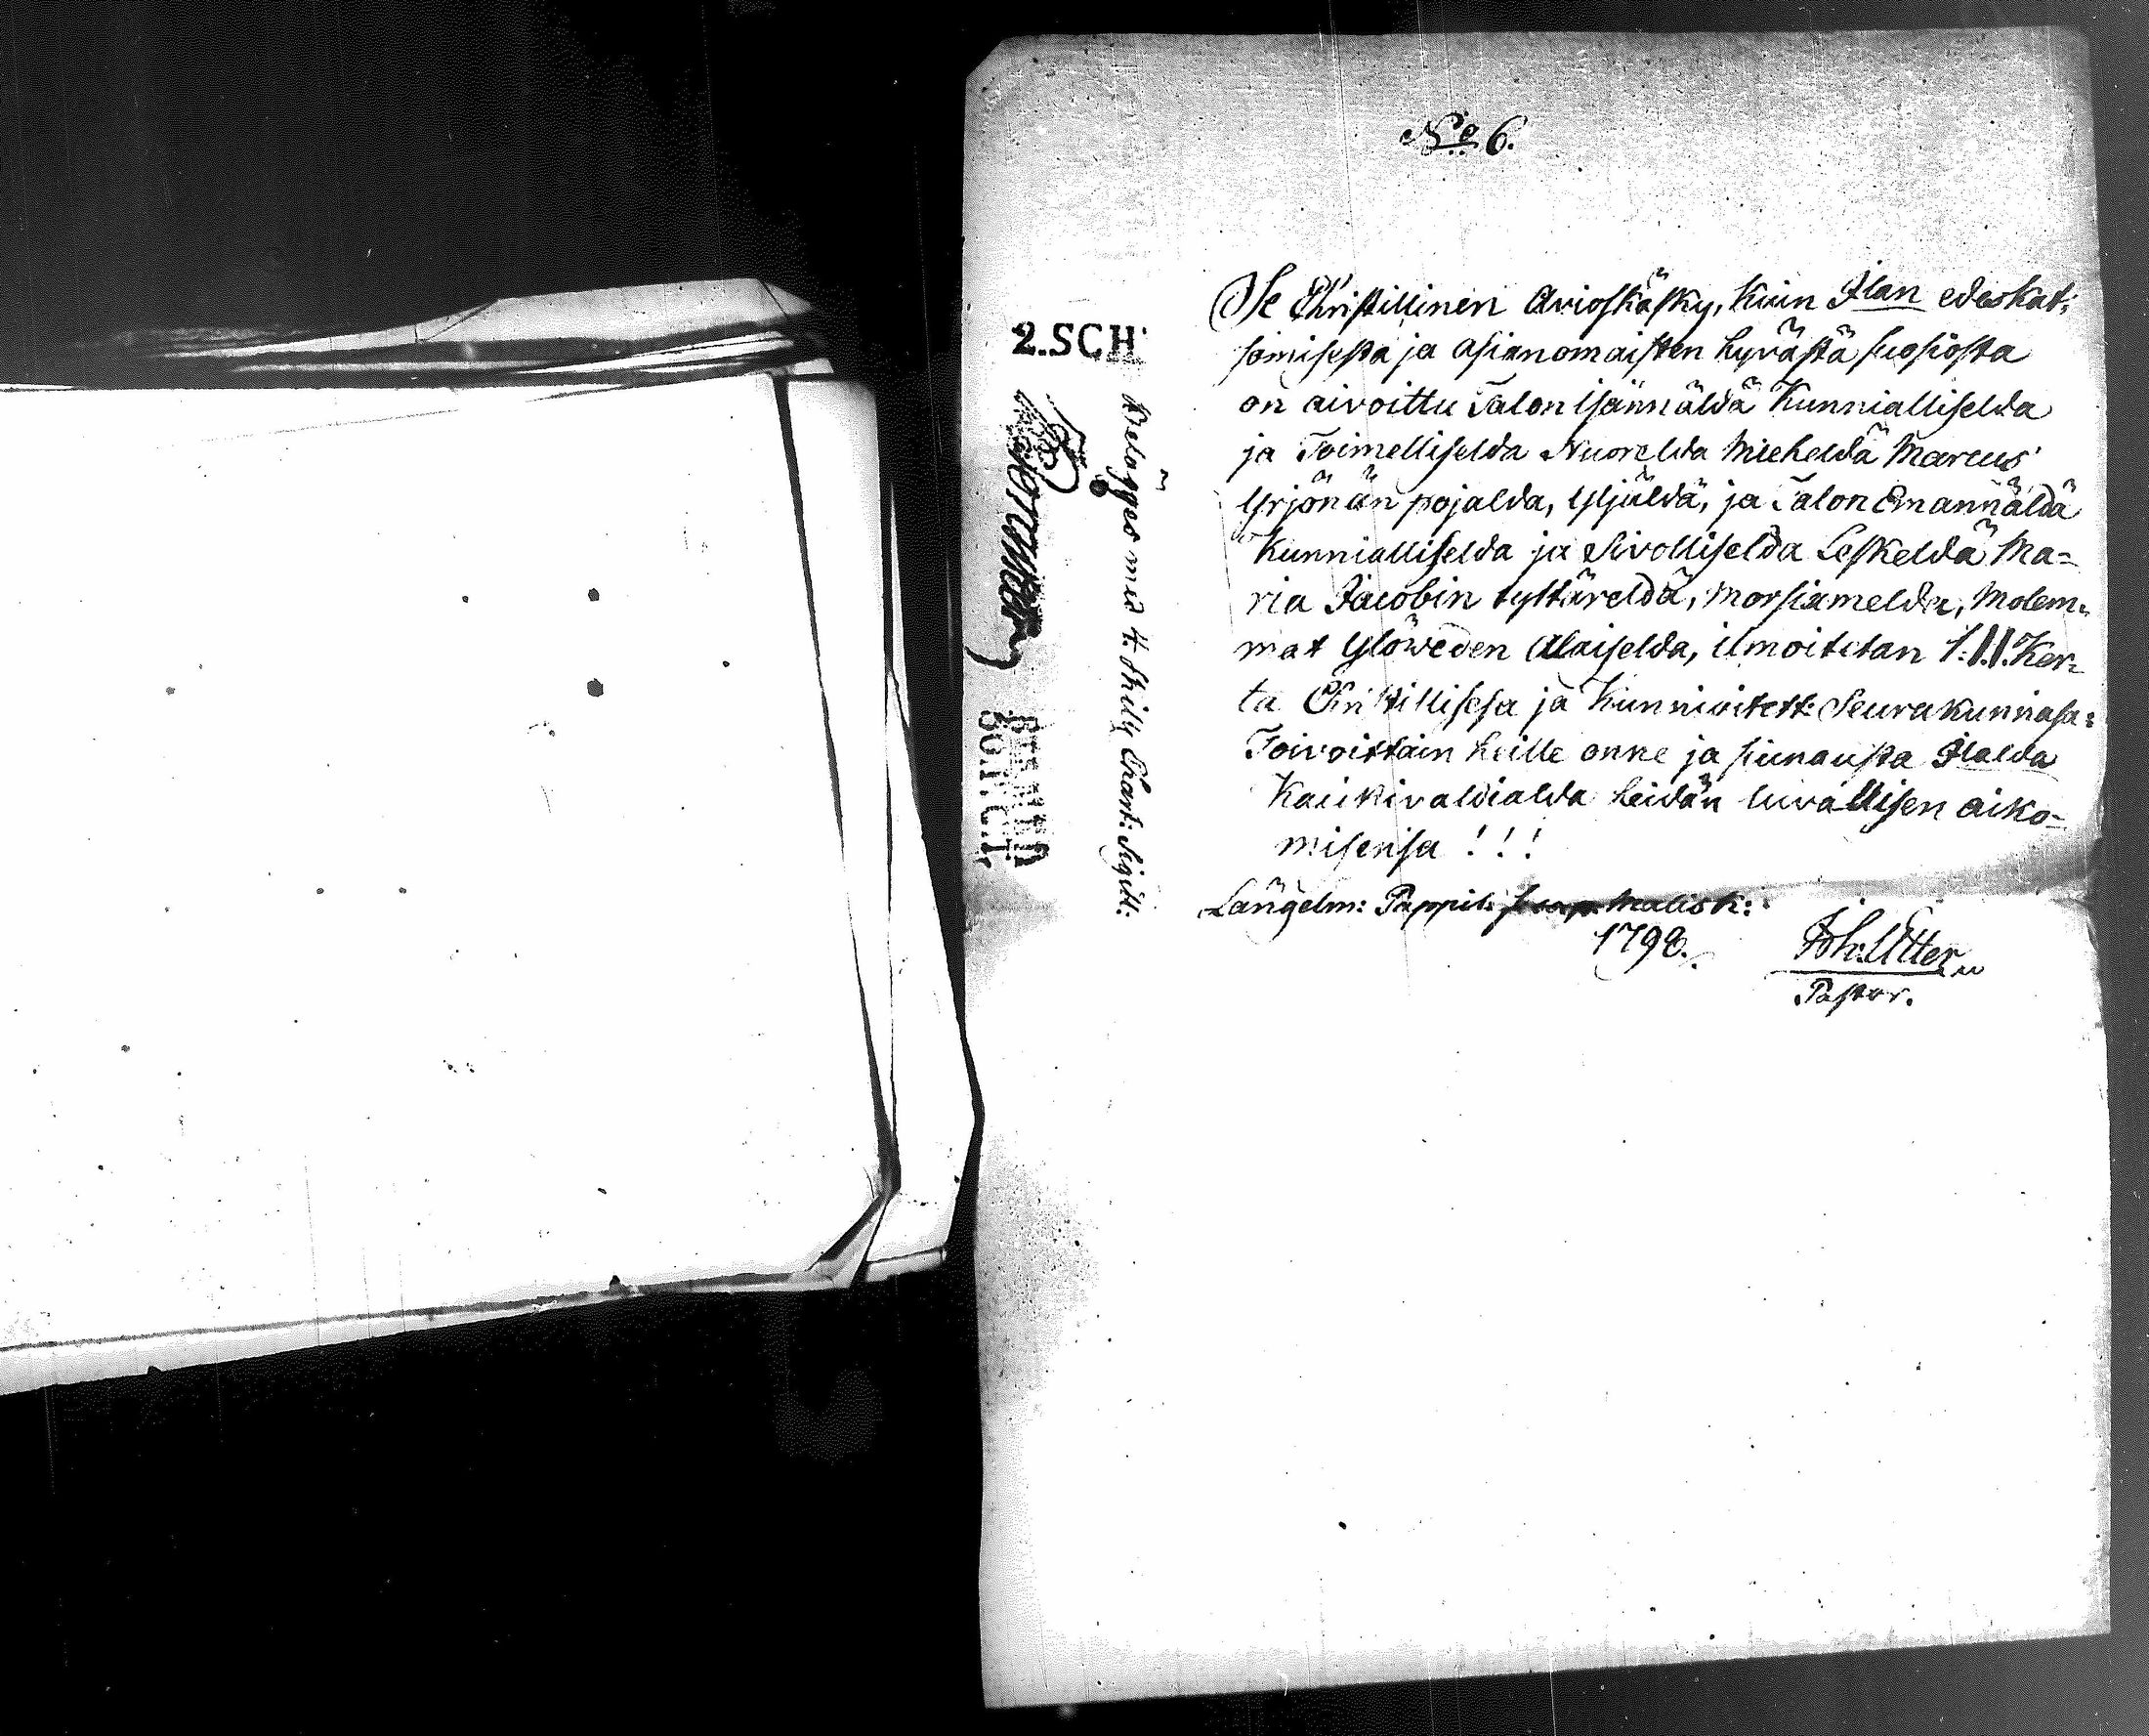 No 6.
Se Christillinen Avioskäsky, kuin Jlan edeskat:
somisesta ja asianomaisten hyvästä suosiosta
on aivoittu Talon Isännäldä Kunnialliselda
ja Toimelliselda Nuorelda Mieheldä Marcus
Yrjönän pojalda, Yljäldä, ja Talon Emännäldä
Kunnialliselda ja Sivolliselda Leskeldä Ma=
ria Jacobin tyttäreldä, Morsiamelda, Molem=
mat Ylöweden Alaiselda, ilmoitetan 1. Ker=
ta Christillisesä ja Kunnioitett: Seurakunnasa:
Toivoittain heille onne ja siunausta Jlalda
Kaikivaldialda heidän luvallisen aiko=
misensa !!!
Längelm: Pappil: Malisk:
1798.
Joh: Utter
Pastor.
2.SCH
Belägges med 4. skill: Chart: Sigill: